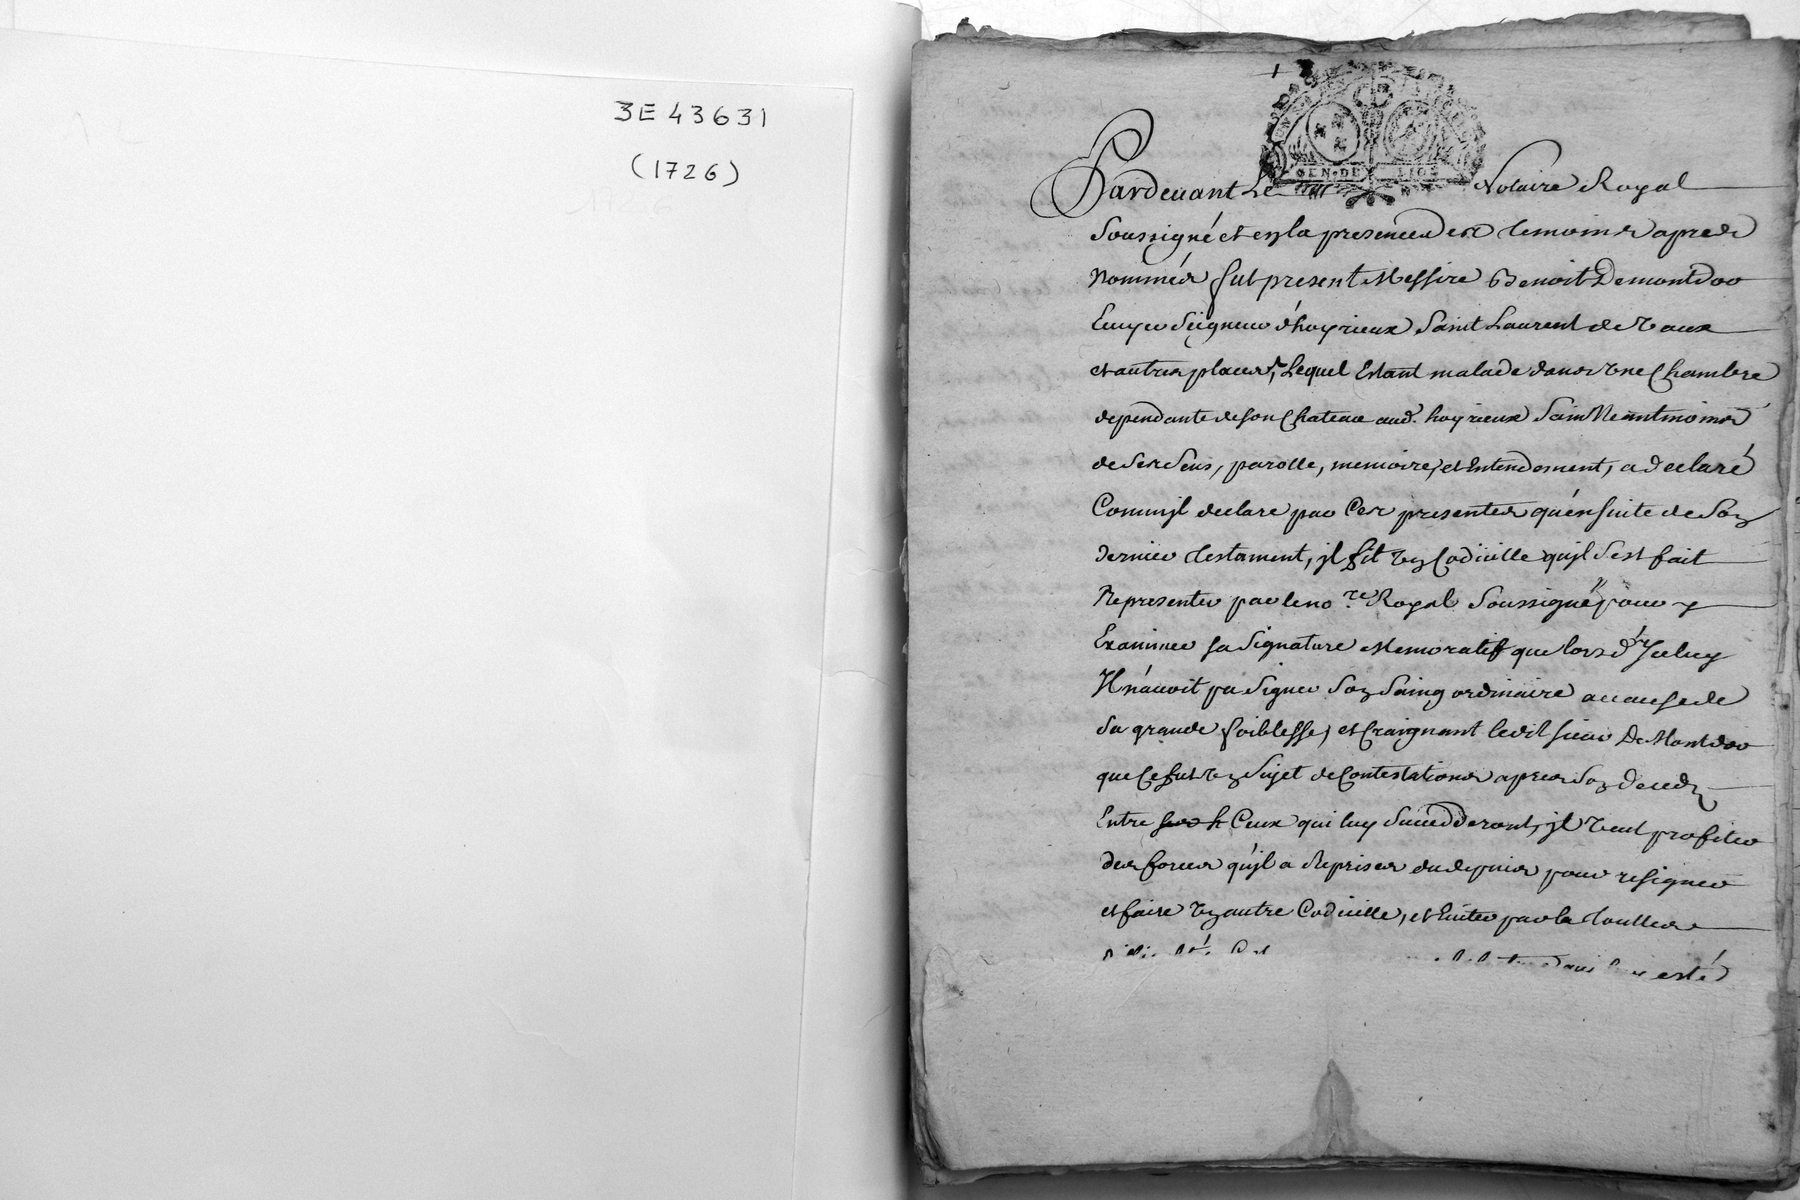 3E 43631
(1726)
GEN. DE LION
Pardevant Le Notaire Royal
Soussigné et en la presence des temoins apres
Nommés fut present Messire Benoit Demontdor
Ecuyer Seigneur d'hoyrieux Saint Laurent de Vaux
et autres places, Lequel Estant malade dans Vne Chambre
dependante de son Chateau aud. hoyrieux Sain Neantmoins
de Ses Sens, parolle, memoire, et Entendement, a declaré
Comm'jl declare par Ces presentes qu'en suite de Son
dernier testament, jl fit Vn Codicille qu'jl s'est fait
Representer par le no.re Royal Soussigné, pour y
Examiner sa Signature Memoratif que lors d'Jceluy
Jl n'avoit pu Signer Son Saing ordinaire a cause de
Sa grande foiblesse, et Craignant ledit sieur De Montdor
que Ce fut Vn Sujet de Contestations apres Son Deceds
Entre Ceux qui luy Succedderont, jl Veut profiter
des forces qu'jl a Reprises du depuis pour resigner
et faire Vn autre Codicille, et Eviter par la touttes
esté